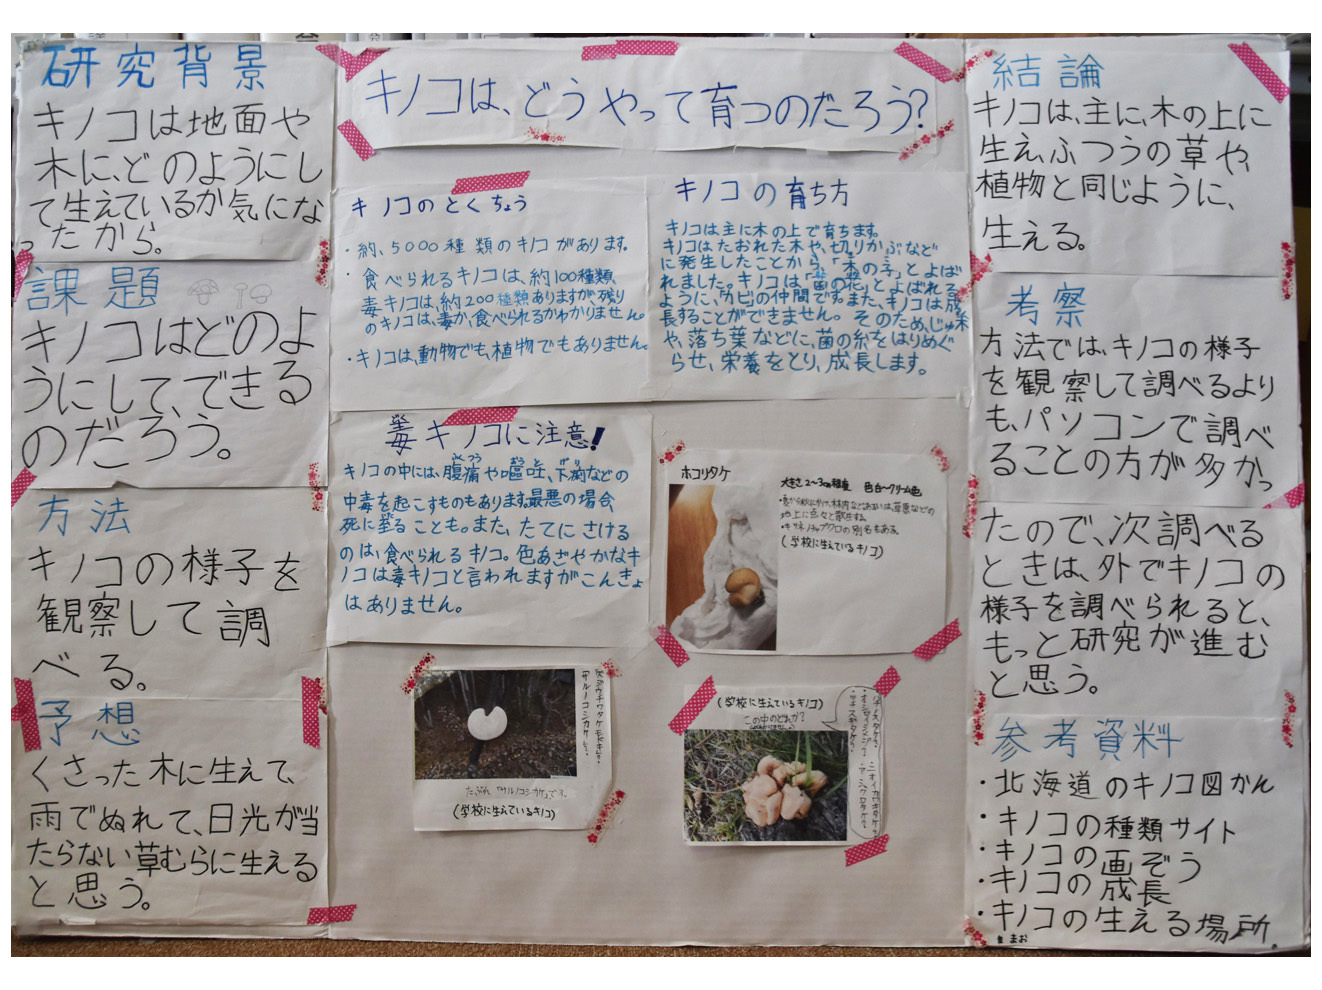 研究背景
キノコは地面や
木に、どのようにし
て生えているか気にな
ったから。
課題
キノコはどのよ
うにして、できる
のだろう。
方法
キノコの様子を
観察して調
べる。
予想
くさった木に生えて、
雨でぬれて、日光が当
たらない草むらに生える
と思う。
キノコは、どうやって育つのだろう?
キノコのとくちょう
・約、5000種類のキノコがあります。
・食べられるキノコは、約100種類、
毒キノコは、約200種類ありますが、残り
のキノコは、毒か、食べられるかわかりません。
・キノコは、動物でも、植物でもありません。
キノコの育ち方
キノコは主に木の上で育ちます。
キノコはたおれた木や、切りかぶなど
に発生したことから、「木の子」とよば
れました。キノコは「菌の花」とよばれる
ように、カビの仲間です。また、キノコは成
長することができません。そのため、じゅ木
や、落ち葉などに、菌の糸をはりめぐ
らせ、栄養をとり、成長します。
毒キノコに注意!
キノコの中には、腹痛や嘔吐、下痢などの
中毒を起こすものもあります。最悪の場合、
死に至ることも。また、たてにさける
のは、食べられるキノコ。色あざやかなキ
ノコは毒キノコと言われますがこんきょ
はありません。
ホコリタケ
大きさ2~3cm程度 色白~クリーム色
地上に点々と散生する。
(学校に生えているキノコ)
たぶん「サルノコシカケ」です。
(学校に生えているキノコ)
(学校に生えているキノコ)
この中のどれか?
結論
キノコは、主に、木の上に
生え、ふつうの草や、
植物と同じように、
生える。
考察
方法では、キノコの様子
を観察して調べるより
も、パソコンで調べ
ることの方が多かっ
たので、次調べる
ときは、外でキノコの
様子を調べられると、
もっと研究が進む
と思う。
参考資料
・北海道のキノコ図かん
・キノコの種類サイト
・キノコの画ぞう
・キノコの成長
・キノコの生える場所。